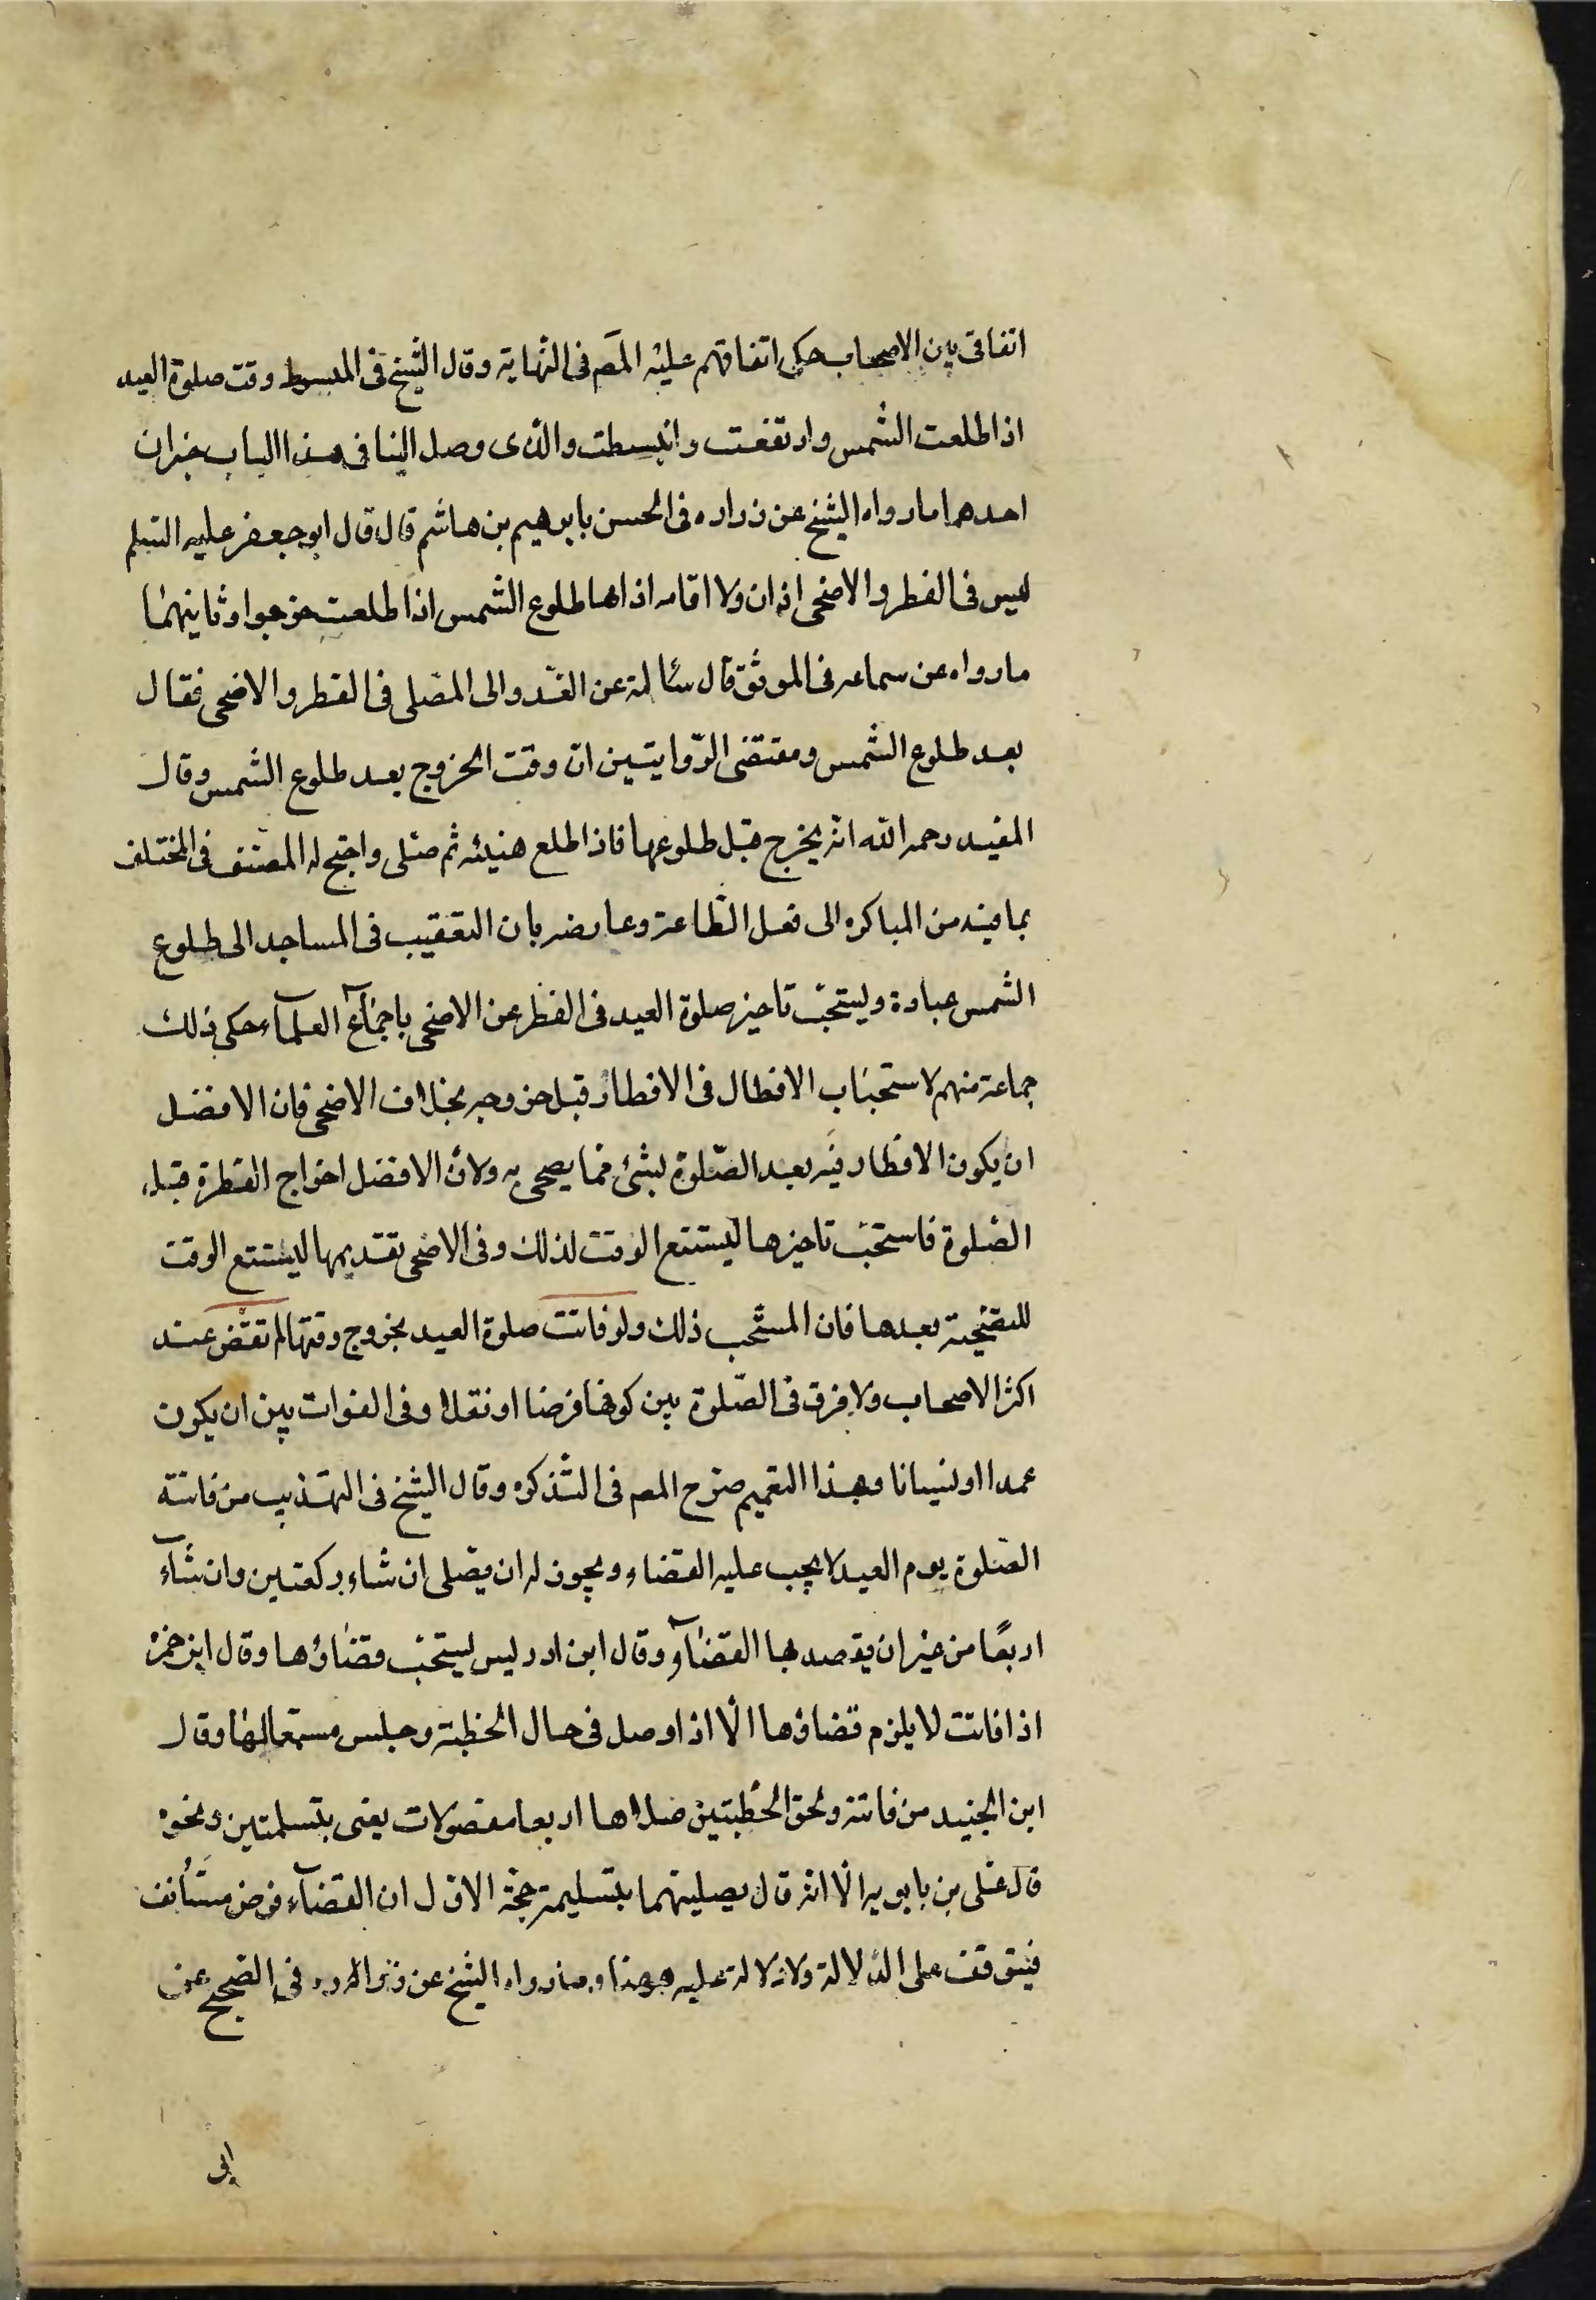 اتفاقى بين الاصحاب حكى اتفاقهم عليه المصم فى النهاية وقال الشيخ فى المبسوط وقت صلوة العيد
اذا طلعت الشمس وارتفعت وانبسطت والذى وصل الينا فى هذا الباب خبران
احدهما مارواه الشيخ عن زراره فى الحسن بابرهيم بن هاشم قال قال ابو جعفر عليه السلم
ليس فى الفطر والاضحى اذان ولا اقامه اذانها طلوع الشمس اذا طلعت خرجوا وثانيهما
مارواه عن سماعه فى الموثق قال سالته عن الغدو الى المصلى فى الفطر والاضحى فقال
بعد طلوع الشمس ومقتضى الروايتين ان وقت الخروج بعد طلوع الشمس وقال
المفيد رحمه الله انه يخرج قبل طلوعها فاذا طلع هنيئه ثم صلى واحتج له المصنف فى المختلف
بما فيه من المباكره الى فعل الطاعة وعارضه بان التعقيب فى المساجد الى طلوع
الشمس عبادة ويستحب تاخير صلوة العيد فى الفطر عن الاضحى باجماع العلماء حكى ذلك
جماعة منهم لاستحباب الافطال فى الافطار قبل خروجه بخلاف الاضحى فان الافضل
ان يكون الافطار فيه بعد الصلوة بشئ مما يضحى به ولان الافضل اخراج الفطرة قبل
الصلوة فاستحب تاخيرها ليتسع الوقت لذلك وفى الاضحى تقديمها ليتسع الوقت
للتضحية بعدها فان المستحب ذلك ولو فاتت صلوة العيد بخروج وقتها لم تقض عند
اكثر الاصحاب ولا فرق فى الصلوة بين كونها فرضا او نفلا وفى الفوات بين ان يكون
عمدا او نسيانا وبهذا التعميم صرح المصم فى التذكره وقال الشيخ فى التهذيب من فاتته
الصلوة يوم العيد لا يجب عليه القضاء ويجوز له ان يصلى ان شاء ركعتين وان شاء
اربعًا من غير ان يقصد بها القضاء وقال ابن ادريس يستحب قضاؤها وقال ابن حمزه
اذا فاتت لا يلزم قضاؤها الا اذا وصل فى حال الخطبة وجلس مستمعا لها وقال
ابن الجنيد من فاتته ولحق الخطبتين صلاها اربعا مفصولات يعنى بتسلمتين ونحوه
قال على بن بابويه الا انه قال يصليهما بتسليمة حجة الاول ان القضاء فرض مستأنف
فيتوقف على الدلالة ولا دلالة عليه هنا ومارواه الشيخ عن زراره فى الصحيح عن
ابى